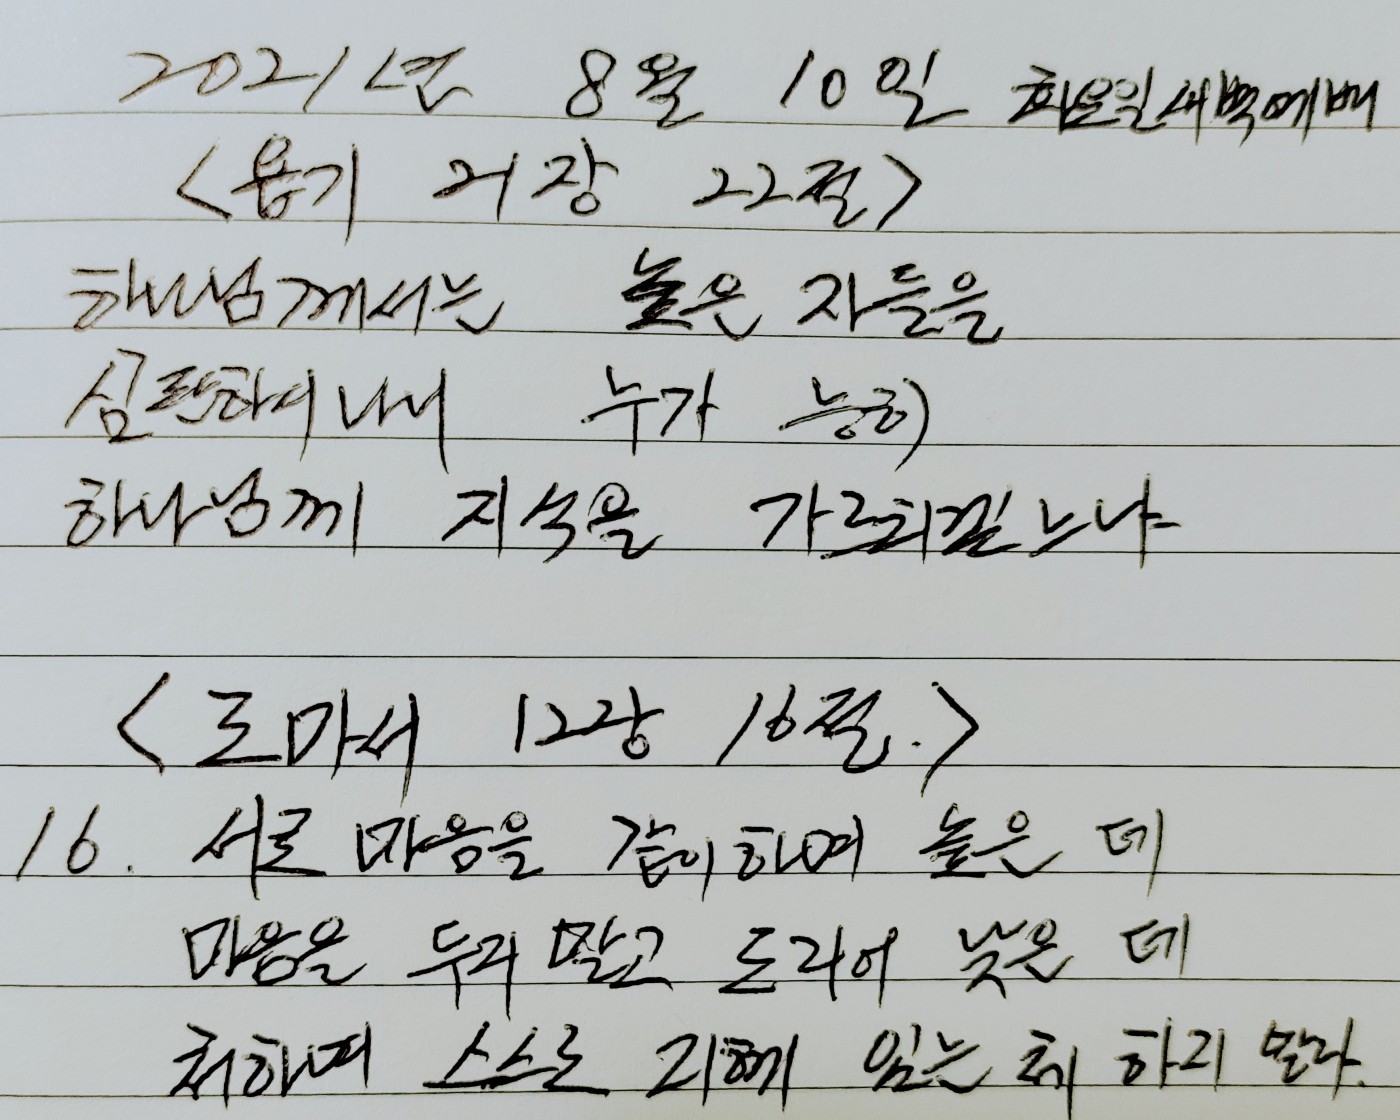 2021년 8월 10일 화요일새벽예배
<욥기 21장 22절>
하나님께서는 높은 자들을
심판하시나니 누가 능히
하나님께 지식을 가르치겠느냐
<로마서 12장 16절.>
16. 서로 마음을 같이하며 높은 데
마음을 두지 말고 도리어 낮은 데
처하며 스스로 지혜 있는 체 하지 말라.